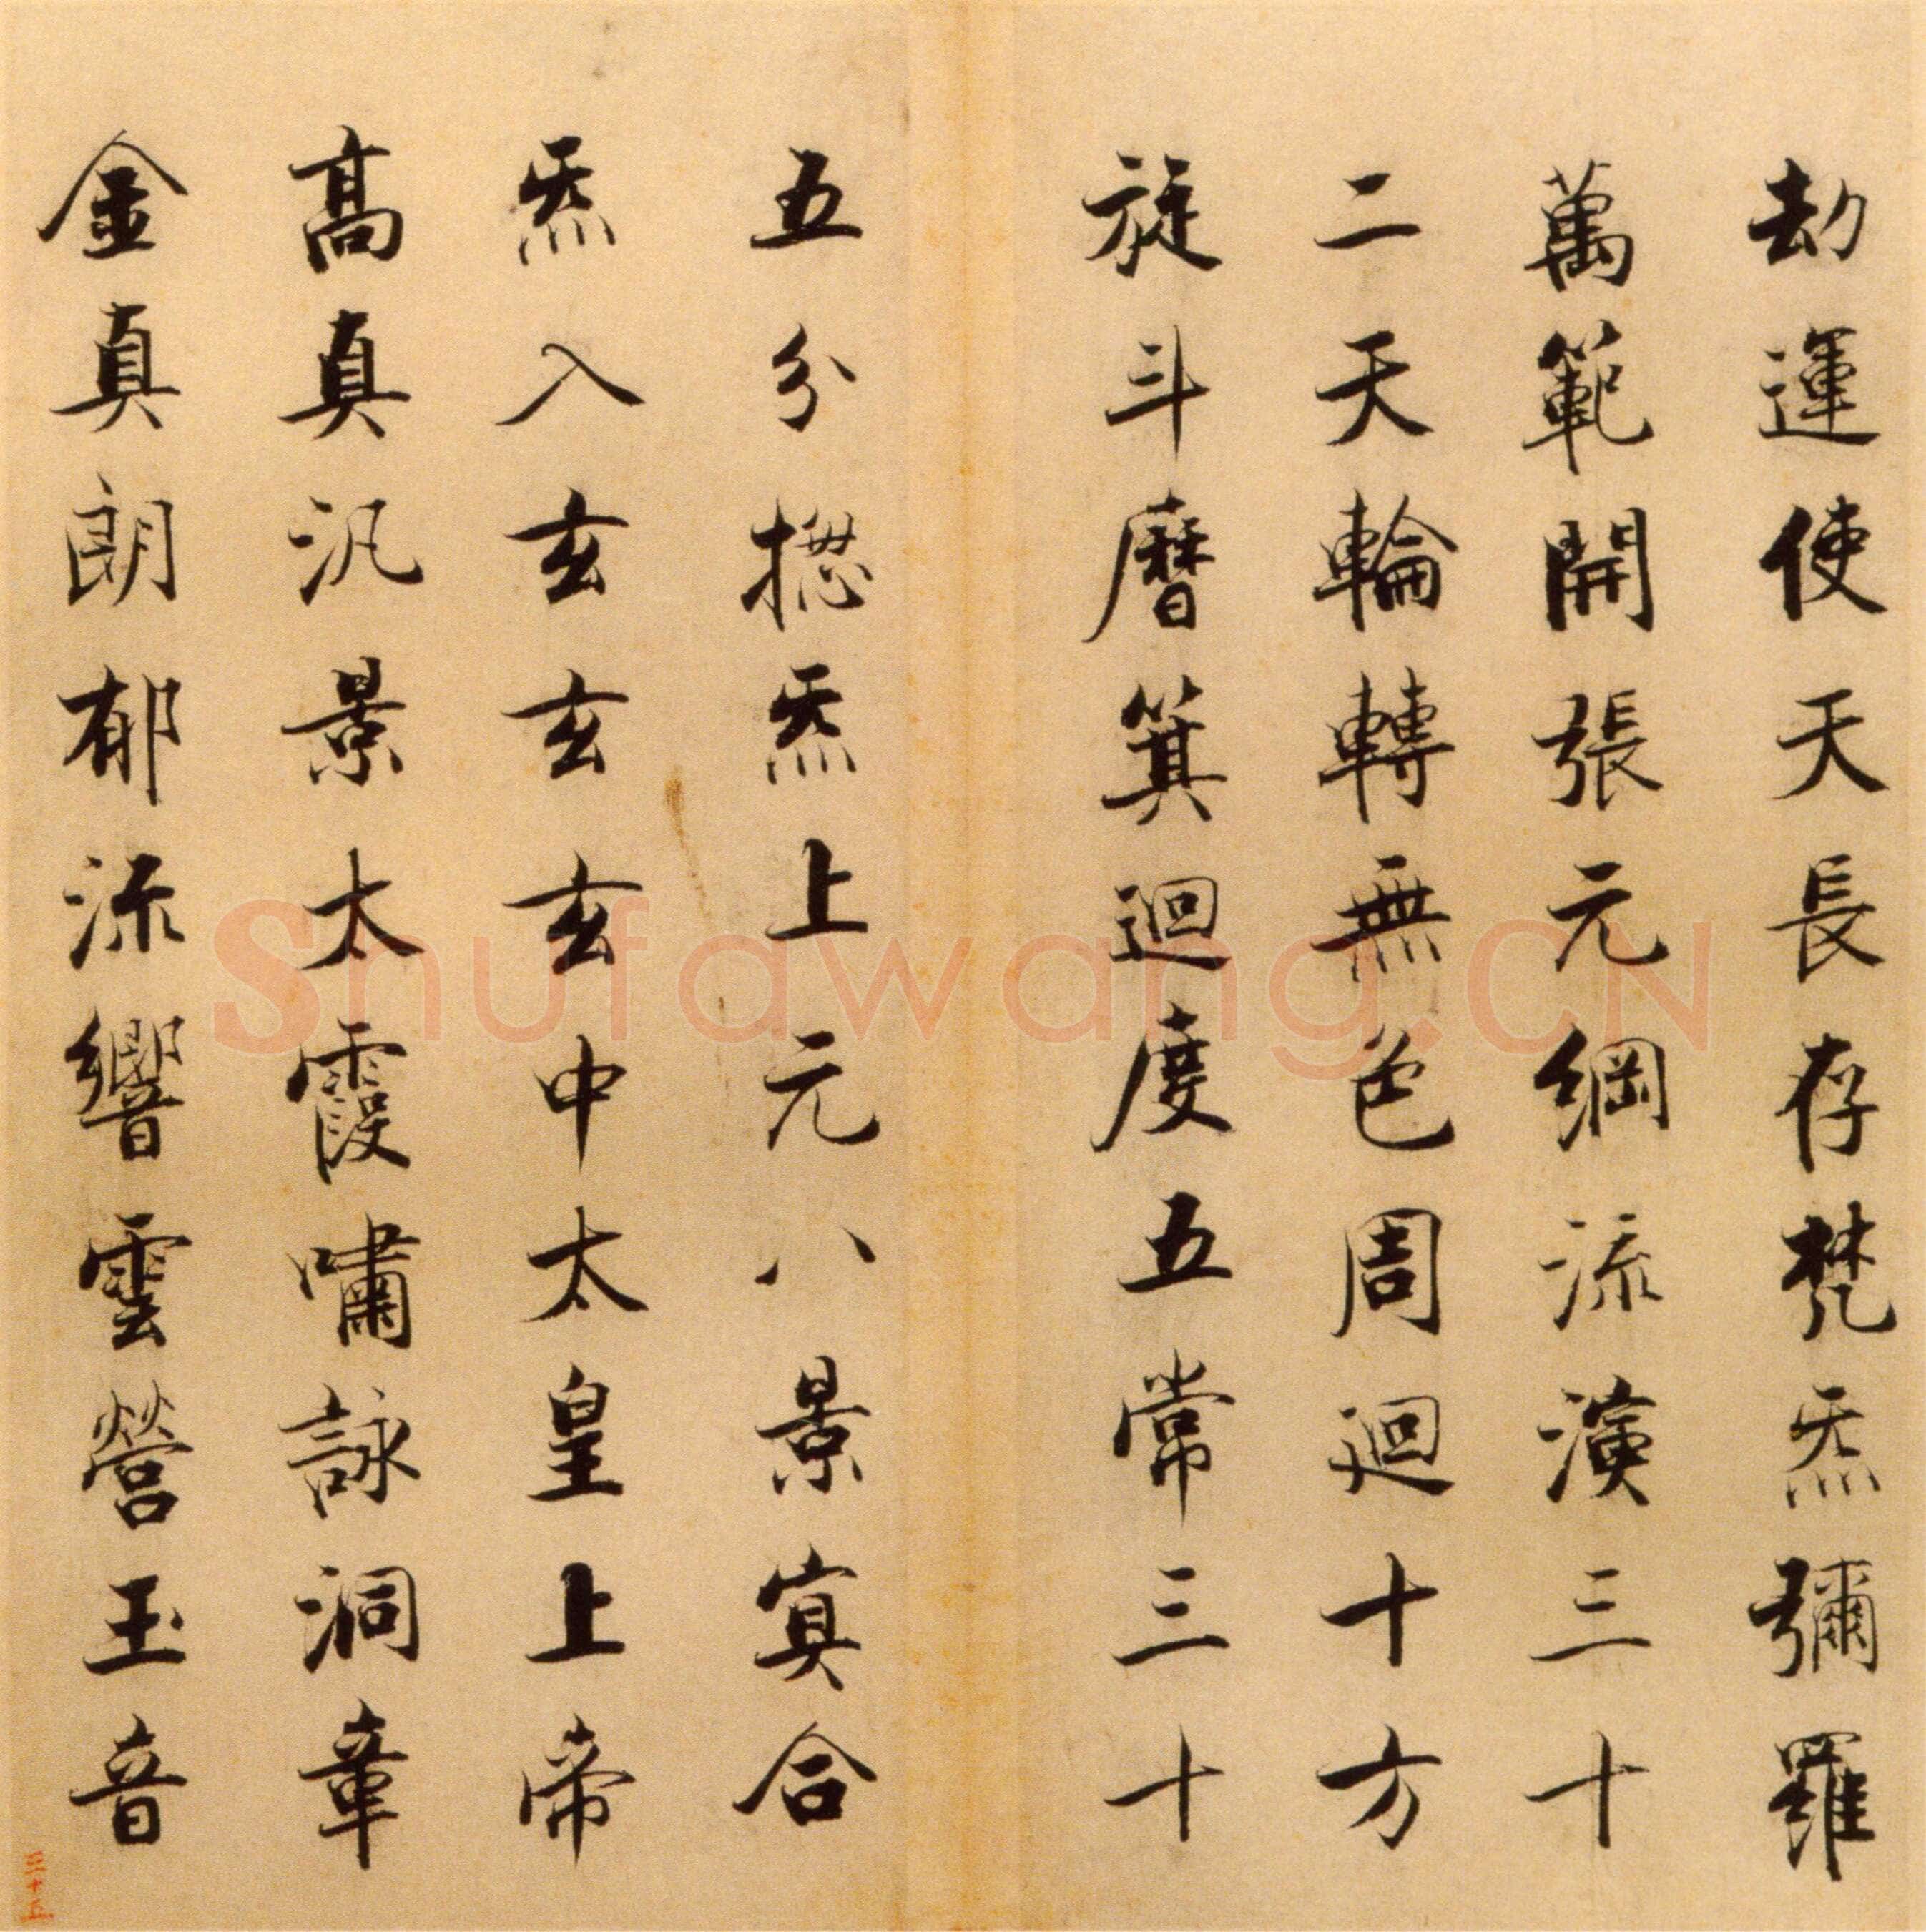 劫運使天長存梵炁彌羅
萬範開張元綱流演三十
二天輪轉無色周迴十方
旋斗曆箕迴度五常三十
五分揔炁上元八景寘合
炁入玄玄玄中太皇上帝
高真汎景太霞嘯詠洞章
金真朗郁流響雲營玉音
三十五
Shufawang.CN